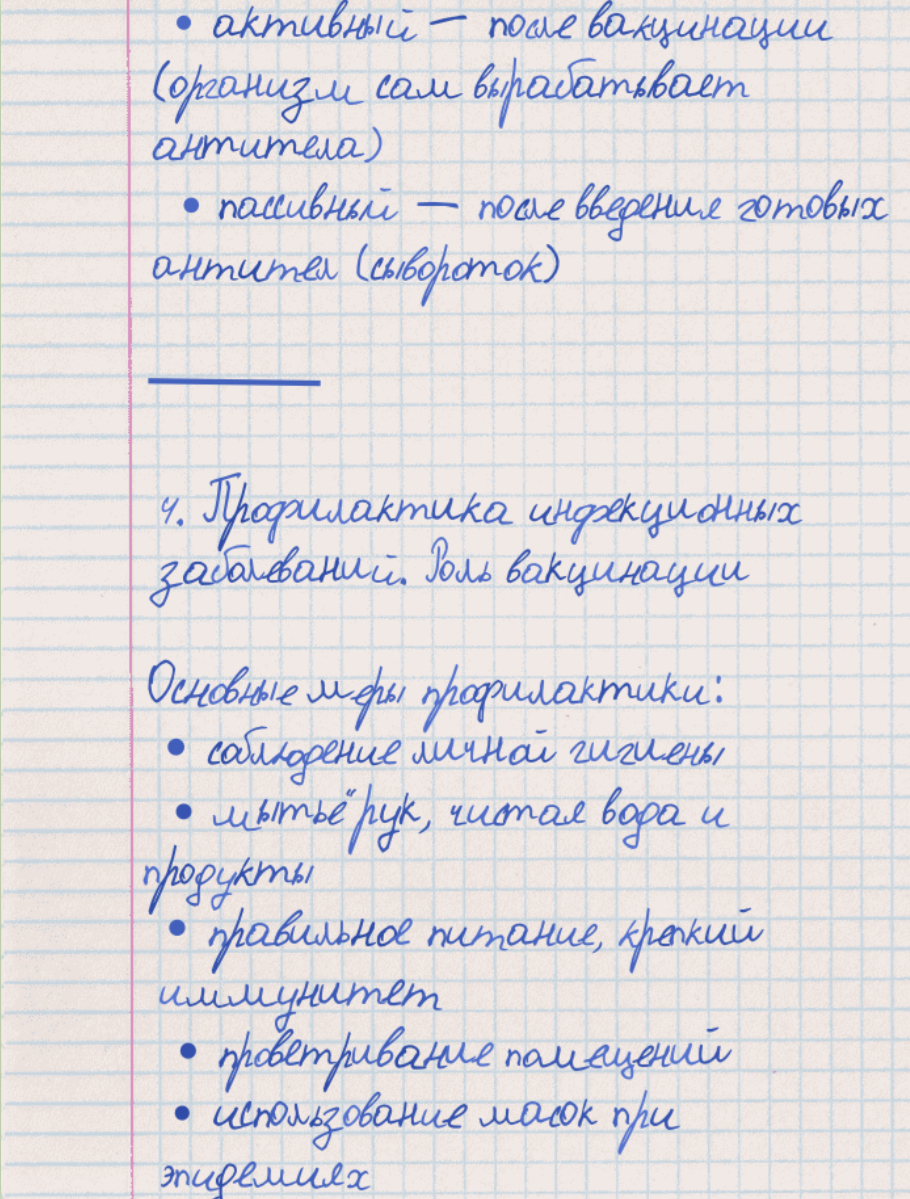 • активный — после вакцинации
(организм сам вырабатывает
антитела)
• пассивный — после введения готовых
антител (сывороток)
4. Профилактика инфекционных
заболеваний. Роль вакцинации
Основные меры профилактики:
• соблюдение личной гигиены
• мытьё рук, чистая вода и
продукты
• правильное питание, крепкий
иммунитет
• проветривание помещений
• использование масок при
эпидемиях